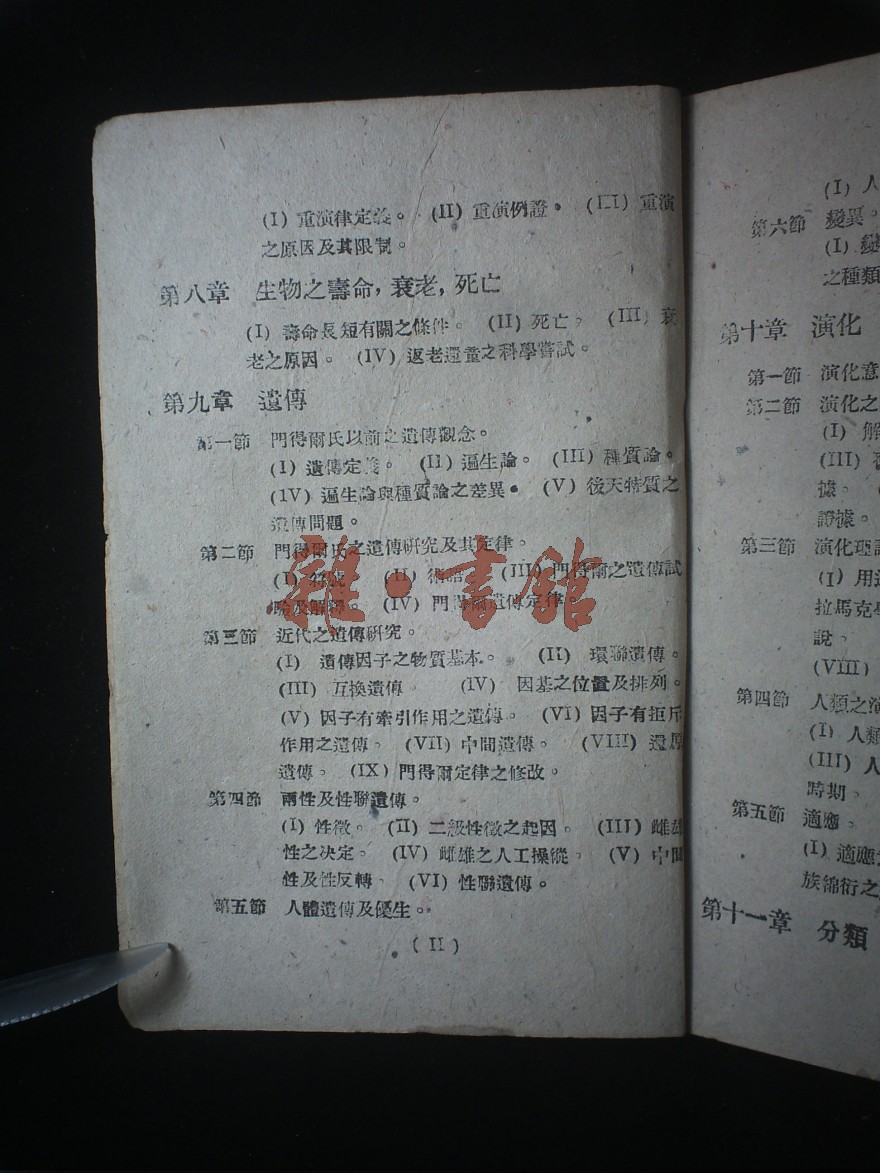 (I) 重演律定義。 (II) 重演例證。 (III) 重演
之原因及其限制。
第八章 生物之壽命,衰老,死亡
(I) 壽命長短有關之條件。 (II) 死亡。 (III) 衰
老之原因。 (IV) 返老還童之科學嘗試。
第九章 遺傳
第一節 門得爾氏以前之遺傳觀念。
(I) 遺傳定義。 (II) 遍生論。 (III) 種質論。
(IV) 遍生論與種質論之差異。 (V) 後天特質之
遺傳問題。
第二節 門得爾氏之遺傳研究及其定律。
(I) 符號 (II) 術語 (III) 門得爾之遺傳試
驗及解釋。 (IV) 門得爾遺傳定律。
第三節 近代之遺傳研究。
(I) 遺傳因子之物質基本。 (II) 環聯遺傳。
(III) 互換遺傳 (IV) 因基之位置及排列。
(V) 因子有牽引作用之遺傳。 (VI) 因子有拒斥
作用之遺傳。 (VII) 中間遺傳。 (VIII) 還原
遺傳。 (IX) 門得爾定律之修改。
第四節 兩性及性聯遺傳。
(I) 性徵。 (II) 二級性徵之起因。 (III) 雌雄
性之決定。 (IV) 雌雄之人工操縱。 (V) 中間
性及性反轉。 (VI) 性聯遺傳。
第五節 人體遺傳及優生。
(II)
雜·書館
(I) 人
第六節 變異。
(I) 變
之種類
第十章 演化
第一節 演化意
第二節 演化之
(I) 解
(III)
據。
證據。
第三節 演化理
(I) 用
拉馬克學
說。
(VIII)
第四節 人類之演
(I) 人類
(III) 人
時期。
第五節 適應。
(I) 適應
族綿衍之
第十一章 分類